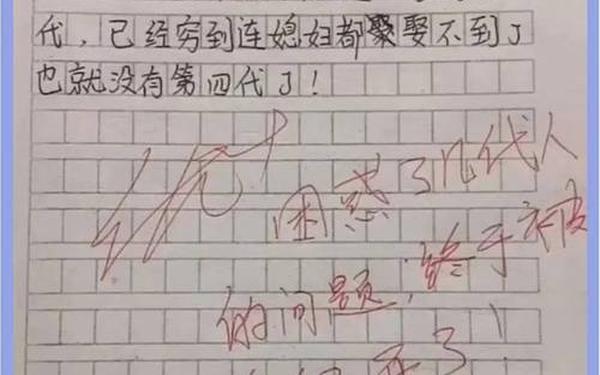 代，已经穷到连媳妇都娶不到了
也就没有第四代了！
优+
困惑了几代人
的问题，终于被
了！